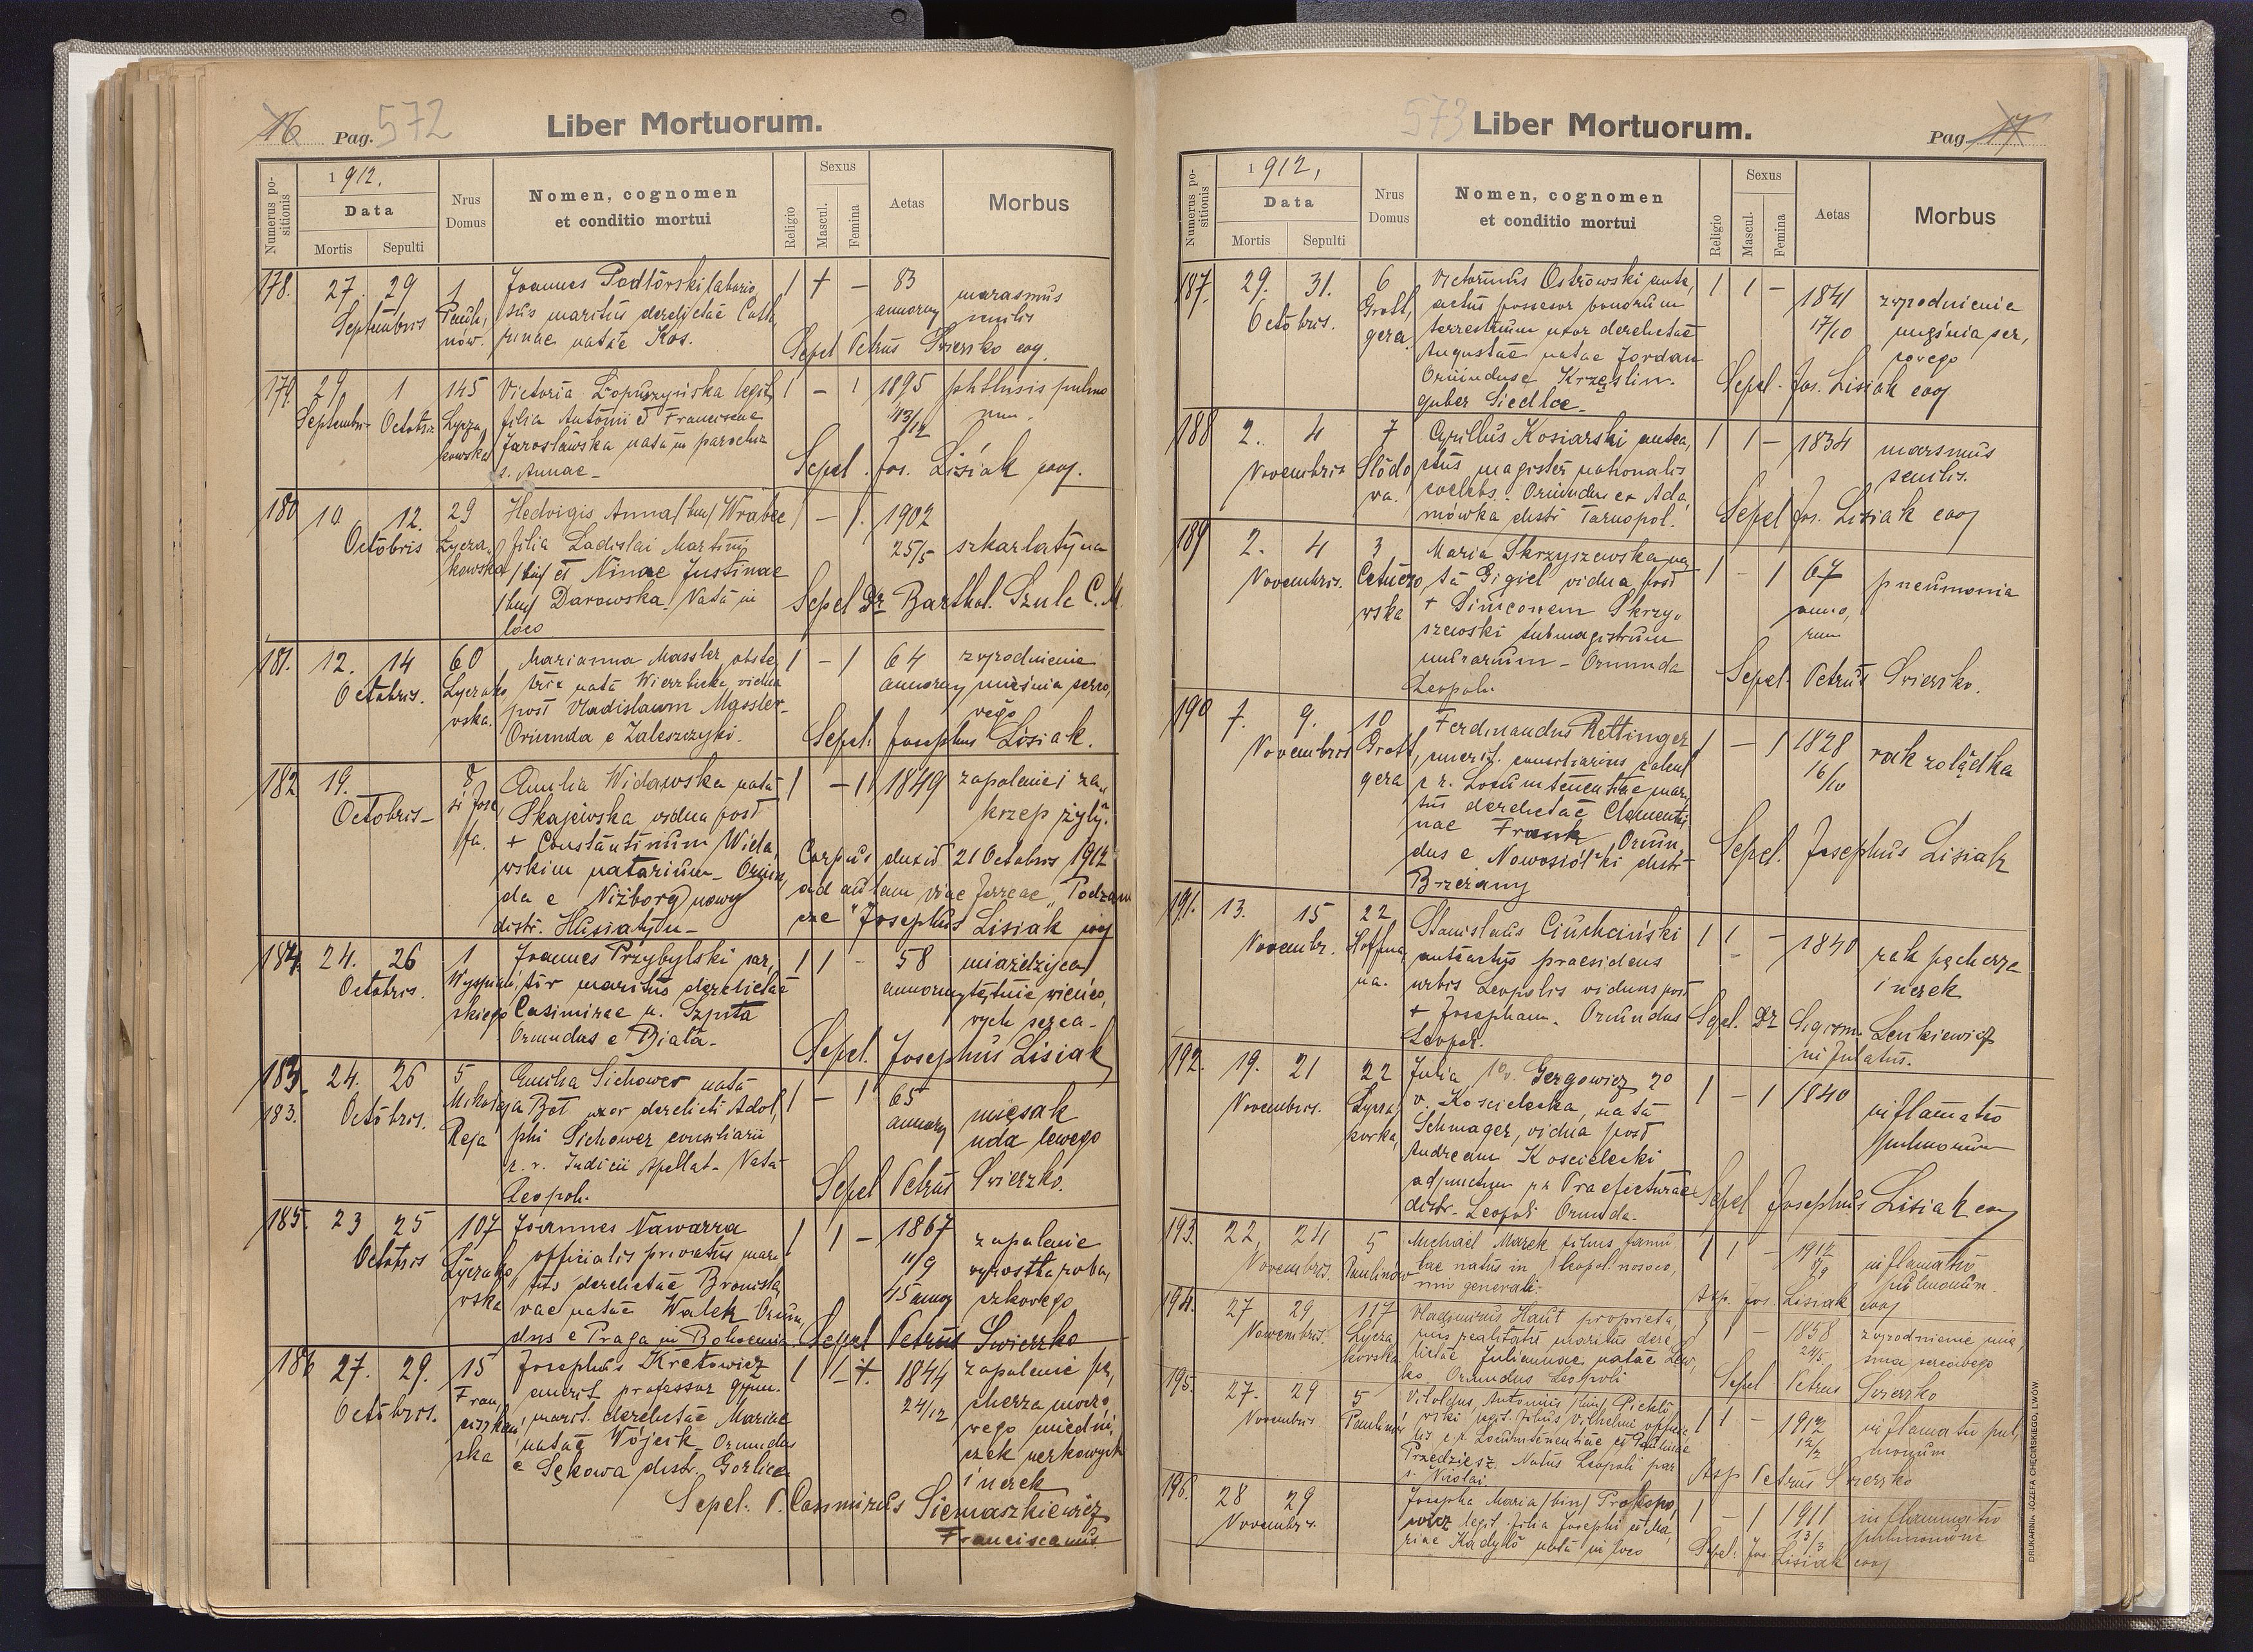 16 Pag. 572
Liber Mortuorum.
Numerus positionis
1912.
Data
Mortis Sepulti
Nrus Domus
Nomen, cognomen
et conditio mortui
Religio
Sexus
Mascul. Femina
Aetas
Morbus
178. 27. 29 Septembris 1
Joannes Podtórski laborio,
sus maritus derelictae Catha,
rinae natae Kos.
1 + – 83 annorum
marasmus
senilis
Sepel Petrus Świerzko coop.
179. 29 Septembris 1 Octobris 145 Łycza, kowska
Victoria Łopuszyńska legit,
filia Antonii et Franciscae
Jarosławska nata in parochia
s. Annae –
1 – 1 1895
phthisis pulmo
num.
Sepel. Jos. Lisiak coop.
180 10 12. Octobris 29 Łycza, kowska
Hedvigis Anna /bin/ Wrabec
filia Ladislai Martini
/bin/ et Ninae Justinae
/bin/ Darowska. Nata in
loco
1 – 1. 1902 25/5
szkarlatyna
Sepel Dr Barthol. Szulc C. M.
181. 12. 14 Octobris. 60 Łyczako wska.
Marianna Massler obste,
trix nata Wierzbicka vidua
post Vladislaum Massler –
Oriunda e Zaleszczyki.
1 – 1 64 annorum
zwyrodnienie
mięśnia serco,
wego
Sepel. Josephus Lisiak.
182 19. Octobris – 8 Jose fa.
Amelia Widawska nata
Skajewska vidua post
+ Constantinum Wida,
wskim notarium – Oriun,
da e Niżborg nowy
distr. Husiatyn –
1 – 1 1849
zapalenie i za,
krzep żyły.
Corpus duxit 21 Octobris 1912
ad aulam viae ferreae „Podzam
cze" Josephus Lisiak coop
184. 24. 26 Octobris. 1 Wyspiań, skiego
Joannes Przybylski sar,
tor maritus derelictae
Casimirae n. Szpita
Oriundus e Biała –
1 1 – 58 annorum
miażdżyca
tętnic wieńco,
wych serca –
Sepel. Josephus Lisiak
183. 24. 26 Octobris. 5 Mikołaja Reja
183.
Emilia Sichower nata
Bot uxor derelicti Adol,
phi Sichower consiliarii
c. r. Judicii Apellat – Nata
Leopoli.
1 – 1 65 annorum
mięsak
uda lewego
Sepel Petrus Świerzko.
185. 23 25 Octobris 107 Łyczako wska
Joannes Nawarra
officialis privatus mari,
tus derelictae Bronisla,
vae natae Walek Oriun,
dus e Praga in Bohemia
1 1 – 1867 11/9 45 annor
zapalenie
wyrostka roba,
czkowego
Sepel Petrus Świerzko
186 27. 29. Octobris. 15 Fran, ciszkań, ska
Josephus Kretowicz
emerit. professor gymn.
marit. derelictae Mariae
natae Wójcik Oriundus
e Sękowa distr. Gorlice
1 1 – +. 1844 24/12
zapalenie pę,
cherza moczo,
wego miedni,
czek nerkowych
i nerek
Sepel. P. Casimirus Siemaszkiewicz
Franciscanus
573
Liber Mortuorum.
Pag. 17
Numerus positionis
1912,
Data
Mortis Sepulti
Nrus Domus
Nomen, cognomen
et conditio mortui
Religio
Sexus
Mascul. Femina
Aetas
Morbus
187. 29. 31. Octobris. 6 Grott, gera.
Victorinus Ostrowski ante,
actus possesor bonorum
terrestrium uxor derelictae
Augustae natae Jordan
Oriundus e Krzęślin.
guber Siedlce –
1 1 – 1841 17/10
zwyrodnienie
mięśnia ser,
cowego
Sepel. Jos. Lisiak coop
188 2. 4 Novembris 7 Słodo wa.
Cyrillus Kosiarski antea,
ctus magister nationalis
coelebs. Oriundus ex Ada,
mówka distr Tarnopol.
1 1 – 1834
marsmus
senilis.
Sepel Jos. Lisiak coop
189 2. 4 Novembris. 3 Cetnero wska
Maria Skrzyszewska na,
ta Gigiel vidua post
+ Simeonem Skrzy,
szewski submagistrum
murarium – Oriunda
Leopoli.
1 – 1 67 anno, rum
pneumonia
Sepel. Petrus Świerzko.
190 7. 9. Novembris 10 Grott, gera
Ferdinandus Rettinger
emerit. consiliarius calcul
c r. Locumtenentiae mari,
tus derelictae Clementi,
nae Frank Oriun,
dus e Nowosiółki distr
Brzeżany
1 – 1 1828 16/10
rak żolądka
Sepel. Josephus Lisiak
191. 13. 15 Novembr. 22 Hoffma, na.
Stanislaus Ciuchciński
anteactus praesidens
urbis Leopolis viduus post
+ Josepham. Oriundus
Leopol.
1 1 – 1840
rak pęcherza
i nerek
Sepel. Dr Sigism. Lenkiewicz
infulatus.
192. 19. 21 Novembris. 22 Łycza, kowska,
Julia 1o v. Gergowicz 2o
v. Kościelecka, nata
Schmager, vidua post
Andream Kościelecki
adjunctum c r Praefecturae
distr. Leopoli Oriunda.
1 – 1 1840
inflamatio
pulmonum
Sepel Josephus Lisiak coop
193. 22. 24 Novembris. 5 Paulinów
Michael Marek filius famu
lae natus in Leopol. nosoco,
mio generali.
1 1 – 1912
inflamatio
pulmonum.
Asp. Jos. Lisiak coop
194. 27 29 Novembris. 117 Łycza kowska
Vladimirus Haut proprieta,
rius realitatis maritus dere
lictae Juliannae natae Lew,
ko Oriundus Leopoli
1 1 – 1858 24/5
zwyrodnienie mię,
śnia sercowego
Sepel Petrus Świerzko
195. 27. 29 Novembris 5 Paulinów
Vitoldus Antonius /bin/
legit. filius Vilhelmi
c. r. Locumtenentiae et Paulinae
Przedziesz. Natus Leopoli par
s. Nicolai.
1 1 – 1912
inflamatio pul,
monum
Asp Petrus Świerzko
196. 28 29 Novembr.
Josepha Maria /bin/ Prokopo,
wicz legit. filia Josephi et Ma,
riae Kadyło nata in loco
1 – 1 1911 13/3
inflammatio
pulmonum
Sepel. Jos. Lisiak coop
DRUKARNIA JÓZEFA CHĘCIŃSKIEGO, LWÓW.